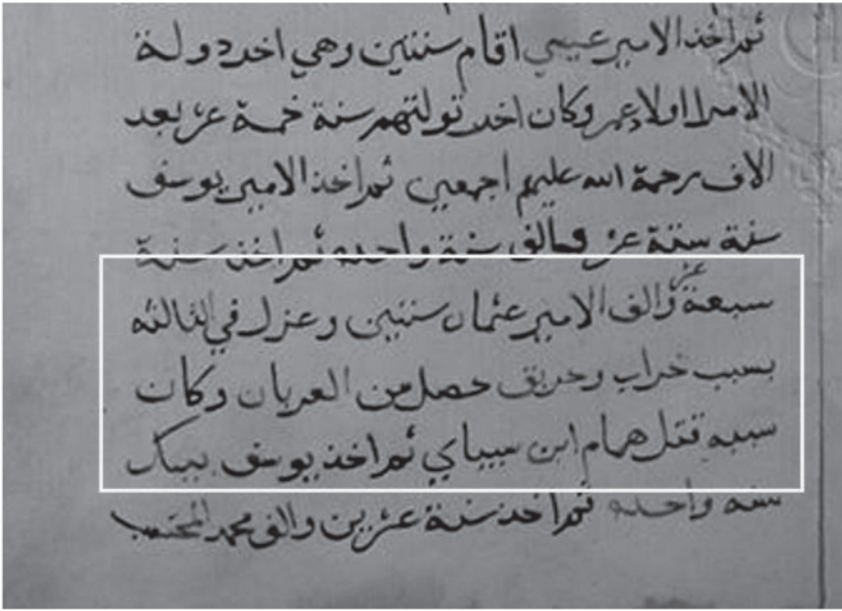 ثم اخذ الامير عيسي اقام سنتين وهي اخر دولة
الامرا اولاد عمر وكان اخد تولتهم سنة خمسة عشر بعد
الالف رحمة الله عليهم اجمعين ثم اخذ الامير يوسف
سنة ستة عشر والف سنة واحده ثم اخذ سنة
سبعة عشر والف الامير عثمان سنتين وعزل في الثالثه
بسبب خراب وحريق حصل من العربان وكان
سببه قتل همام ابن سيباي ثم اخذ يوسف بيك
سنه واحده ثم اخذ سنة عشرين والف محمد المحتسب